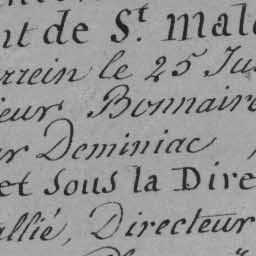 nt de St. Malo
rrein le 25 Ju
ieur Bonnaire
ur Deminiac
et sous la Dire
allié, Directeur